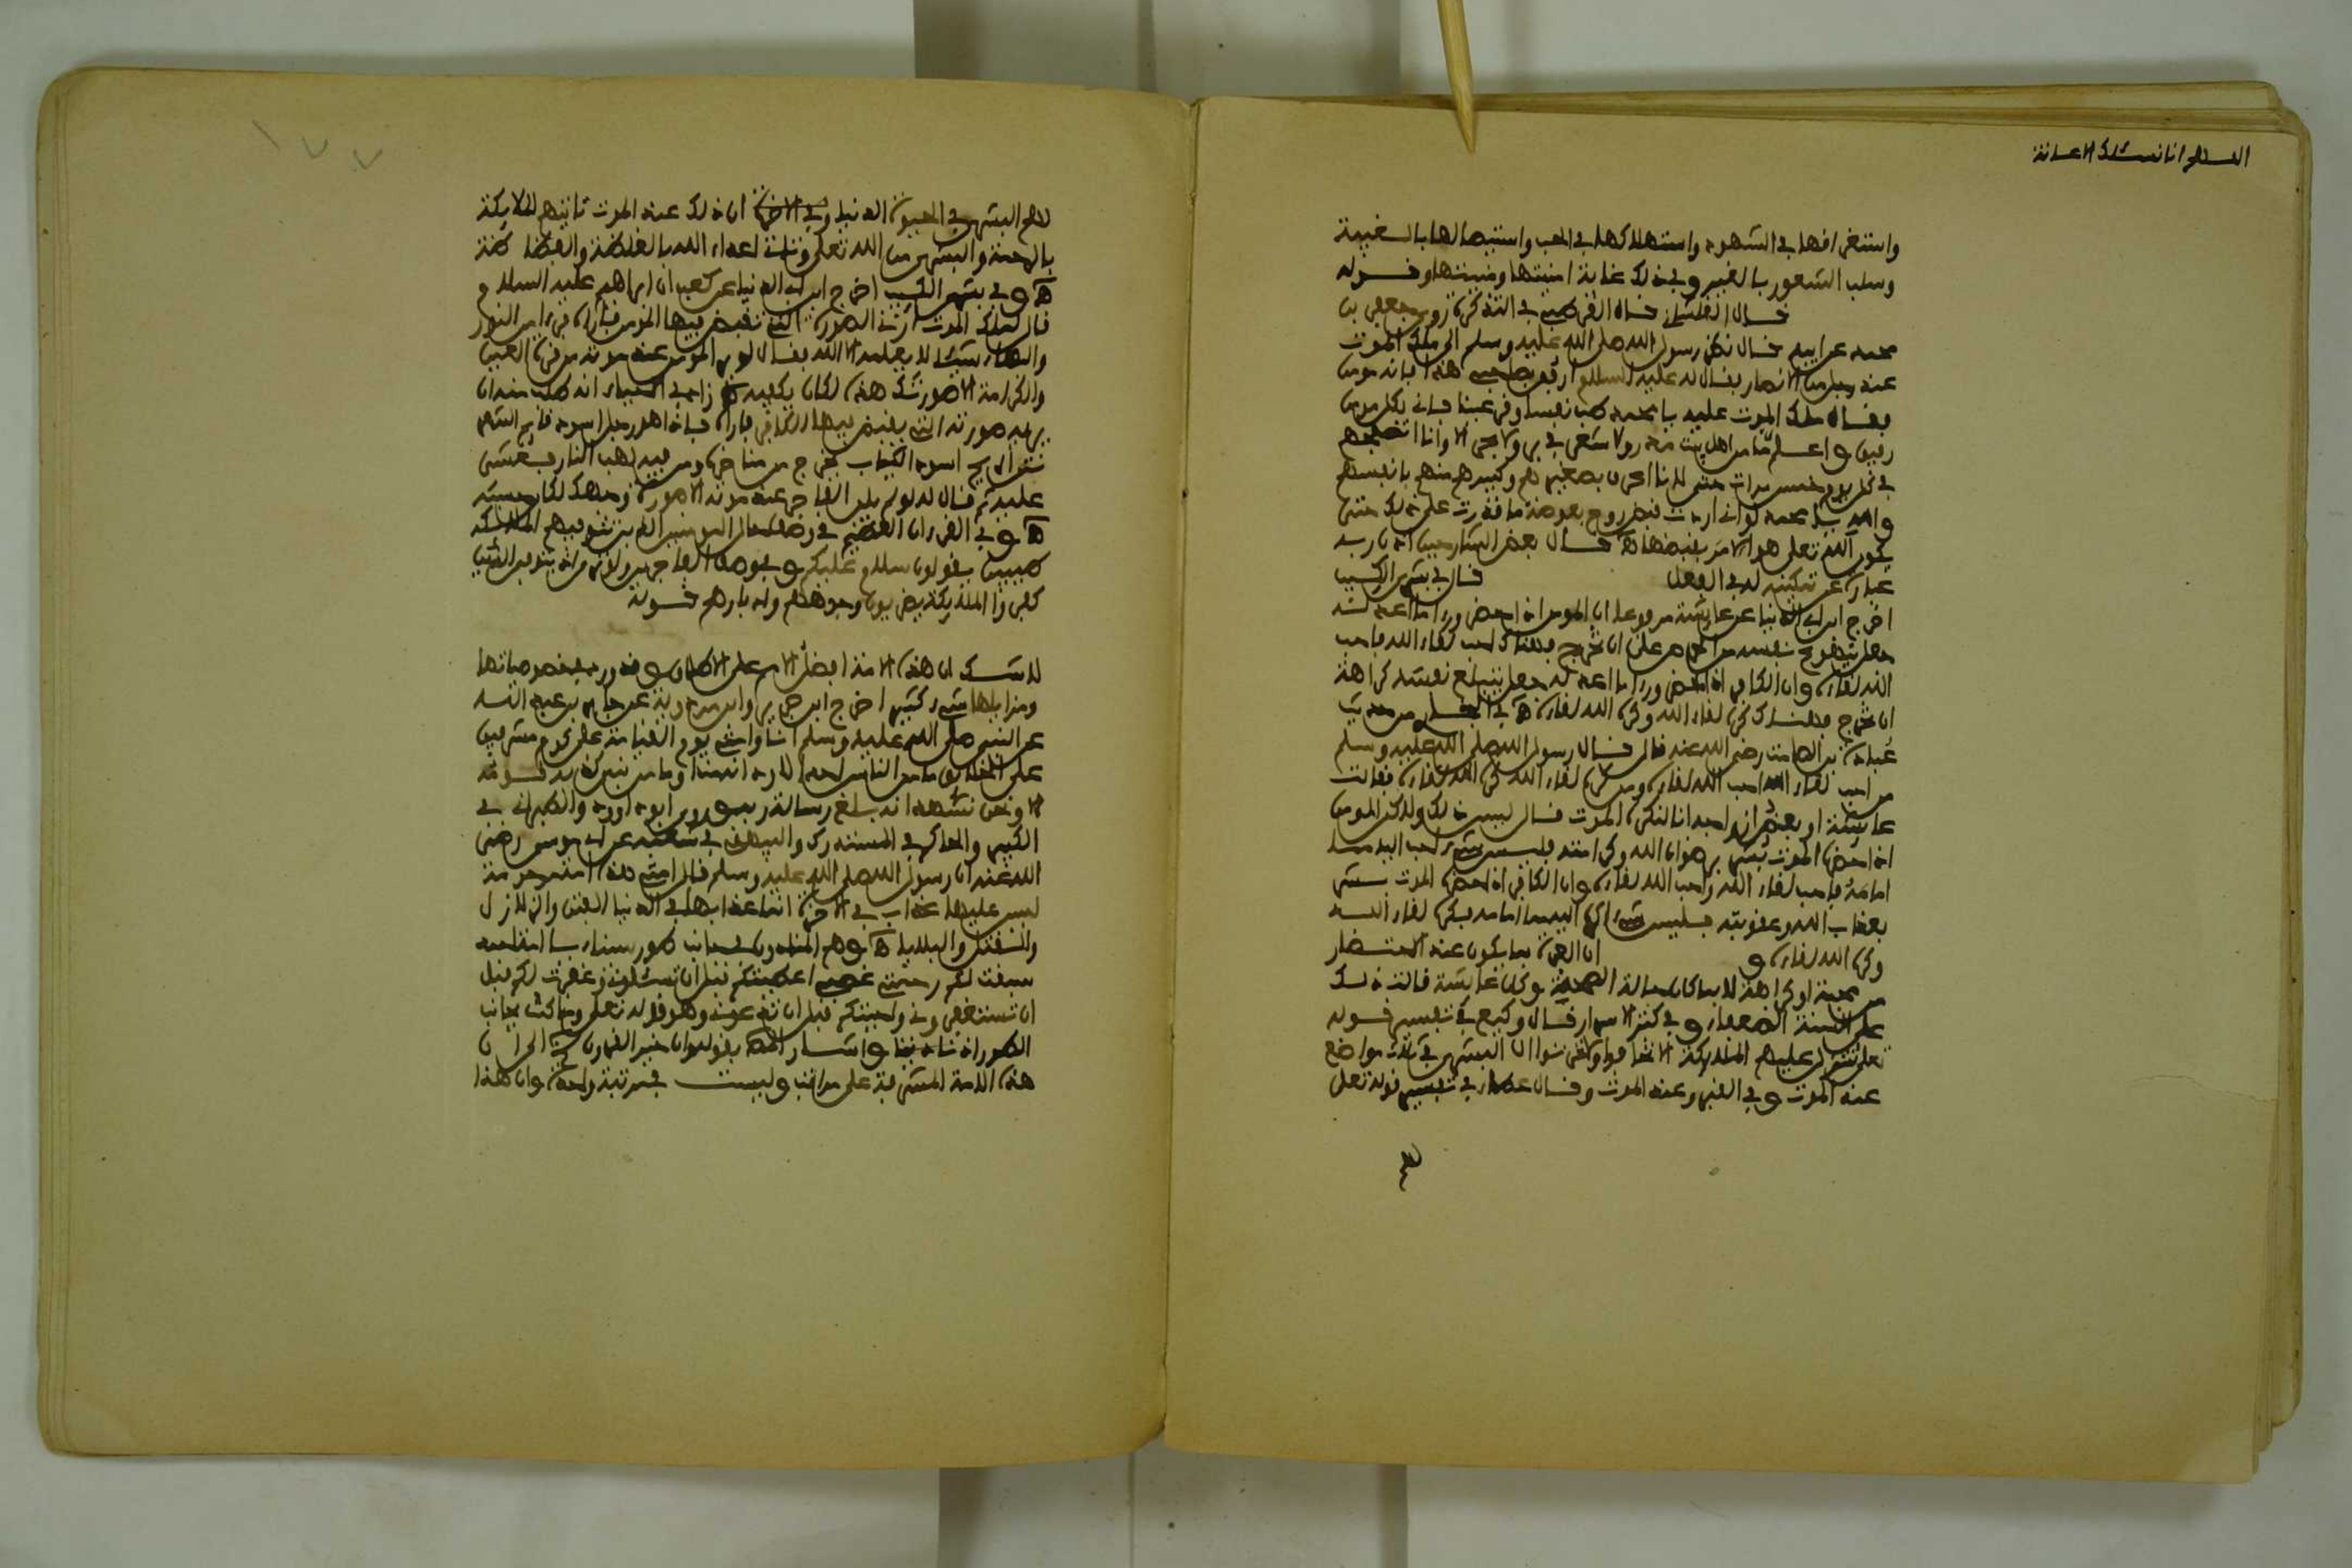 اللهم انا نسئلك الاعانة
واستغرافها في الشهود واستهلاكها في الحب واستيصالها بالغيبة
وسلب الشعور بالغير وفي ذلك غاية امنيتها ومنيتها وقوله
قال القرطبي في التذكرة روى جعفر بن
محمد عن ابيه قال نظر رسول الله صلى الله عليه وسلم الى ملك الموت
عند رجل من الانصار فقال له عليه السلام ارفق بصاحبي هذا فانه مومن
فقال ملك الموت عليه يا محمد طب نفسا وقر عينا فاني بكل مومن
رفيق واعلم ما من اهل بيت مدر ولا شعر في بر ولا بحر الا وانا اتصفحهم
في كل يوم خمس مرات حتى لانا اعرف بصغيرهم وكبيرهم منهم بانفسهم
والله يا محمد لو اني اردت قبض روح بعوضة ما قدرت على ذلك حتى
يكون الله تعلى هو الامر بقبضها قال بعض الشارحين اذن ربه
عبارة عن تمكينه له في الفعل قال في بشرى الكئيب
اخرج ابن ابي الدنيا عن عائشة مرفوعا ان المومن اذا احتضر وراى ما اعد له
جعل يتهوع نفسه من الحرص على ان تخرج فهناك احب لقاء الله واحب
الله لقاءه وان الكافر اذا احتضر وراى ما اعد له جعل يتبلع نفسه كراهة
ان تخرج فهناك كره لقاء الله وكره الله لقاءه من حديث
عبادة بن الصامت رضي الله عنه قال قال رسول الله صلى الله عليه وسلم
من احب لقاء الله احب الله لقاءه ومن كره لقاء الله كره الله لقاءه فقالت
عائشة او بعض ازواجه انا لنكره الموت قال ليس ذلك ولاكن المومن
اذا احتضره الموت بشر برضوان الله وكرامته فليس شيء احب اليه مما
امامه فاحب لقاء الله واحب الله لقاءه وان الكافر اذا احتضره الموت بشر
بعذاب الله وعقوبته فليس شيء اكره اليه مما امامه فكره لقاء الله
وكره الله لقاءه و ان العبرة بما يكون عند الاحتضار
من محبة او كراهة لا بما كان حالة الصحة وكان عائشة قالت ذلك
على السنة الضعفاء وفي كشف الاسرار قال وكيع في تفسير قوله
تعلى تتنزل عليهم الملائكة الا تخافوا ولا تحزنوا ان البشرى في ثلاث مواضع
عند الموت وفي القبر وعند الموت وقال عطاء في تفسير قوله تعلى
١٧٧
لهم البشرى في الحيوة الدنيا وفي الاخرة ان ذلك عند الموت تاتيهم الملائكة
بالرحمة والبشرى من الله تعلى وتاتي اعداء الله بالغلظة والفظاظة
وفي بشرى الكئيب اخرج ابن ابي الدنيا عن كعب ان ابراهيم عليه السلام
قال لملك الموت ارني الصورة التي تقبض فيها المومن فاراه فراى من النور
والبهاء شيئا لا يعلمه الا الله فقال لو لم ير المومن عند موته من قرة العين
والكرامة الا صورتك هذه لكان يكفيه زاد في الاحياء انه طلب منه ان
يريه صورته التي يقبض فيها الكافر فاراه فاذا هو رجل اسود قائم الشعر
نتن الريح اسود الثياب يخرج من مناخره ومن فيه لهب النار فغشي
عليه ثم قال له لو لم يلق الفاجر عند موته الا صورة وجهك لكان حسبه
وفي القرءان العظيم في وصف حال المومنين الذين تتوفيهم الملائكة
طيبين يقولون سلام عليكم وفي وصف الفاجرين ولو ترى اذ يتوفى الذين
كفروا الملائكة يضربون وجوههم وادبارهم قوله
لا شك ان هذه الامة افضل الامم على الاطلاق وقد ورد في خصوصياتها
ومزاياها شيء كثير اخرج ابن جرير وابن مردوية عن جابر بن عبد الله
عن النبي صلى الله عليه وسلم انا وامتي يوم القيامة على كوم مشرفين
على الخلائق ما من الناس احد الا ود انه منا وما من نبي كذبه قومه
الا ونحن نشهد انه بلغ رسالة ربه وروى ابو داوود والطبراني في
الكبير والحاكم في المستدرك والبيهقي في شعبه عن ابي موسى رضي
الله عنه ان رسول الله صلى الله عليه وسلم قال امتي هذه امة مرحومة
ليس عليها عذاب في الاخرة انما عذابها في الدنيا الفتن والزلازل
والقتل والبلايا وهم المنادون بجانب طور سيناء يا امة احمد
سبقت لكم رحمتي غضبي اعطيتكم قبل ان تسئلوني وغفرت لكم قبل
ان تستغفروني واجبتكم قبل ان تدعوني وهو قوله تعلى وما كنت بجانب
الطور اذ نادينا واشار بقوله وان خير القرون الى ان
هذه الامة المشرفة على مراتب وليست في مرتبة واحدة وان هذا